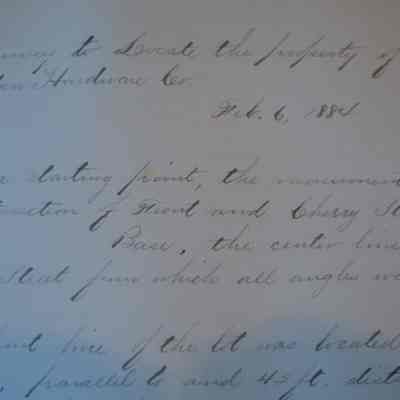 to Locate the property of
Hardware Co.
Feb. 6, 1884
starting point, the monument
of Front and Cherry St
Base, the center line
Street from which all angles we
line of the lot was located
, parallel to and 45 ft. dist